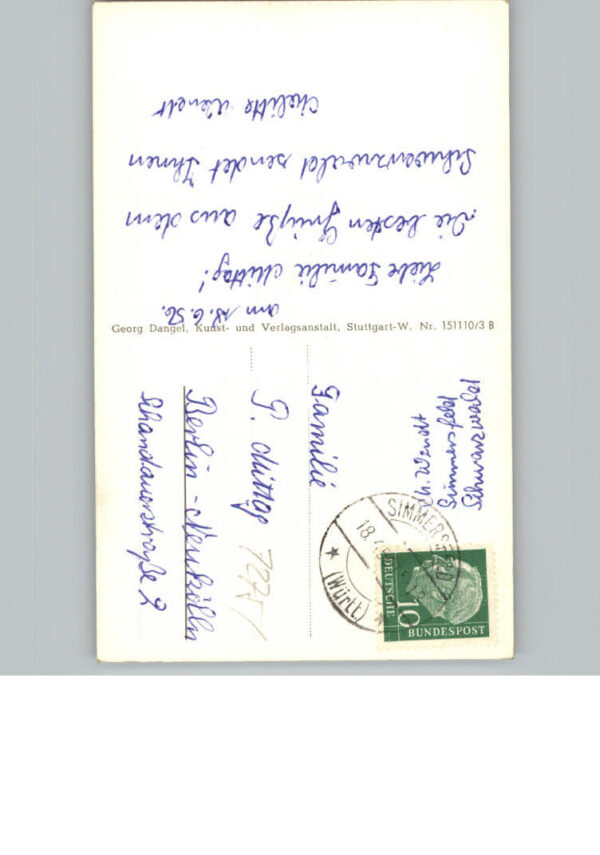 am 18.6.56.
Liebe Familie Mittag!
Die besten Grüße aus dem
Schwarzwald sendet Ihnen
Wendt
Georg Dangel, Kunst- und Verlagsanstalt, Stuttgart-W. Nr. 151110/3 B
Ch. Wendt
Simmersfeld
Schwarzwald
Familie
P. Mittag
Berlin - Neukölln
Schandauerstraße 2
SIMMERSFELD
18.
(Württ)
DEUTSCHE
BUNDESPOST
10